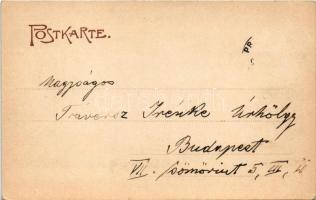 POSTKARTE.
PR
Nagyságos
Traversz Irénke Úrhölgy
Budapest
VII. Dömöriut 5, III,